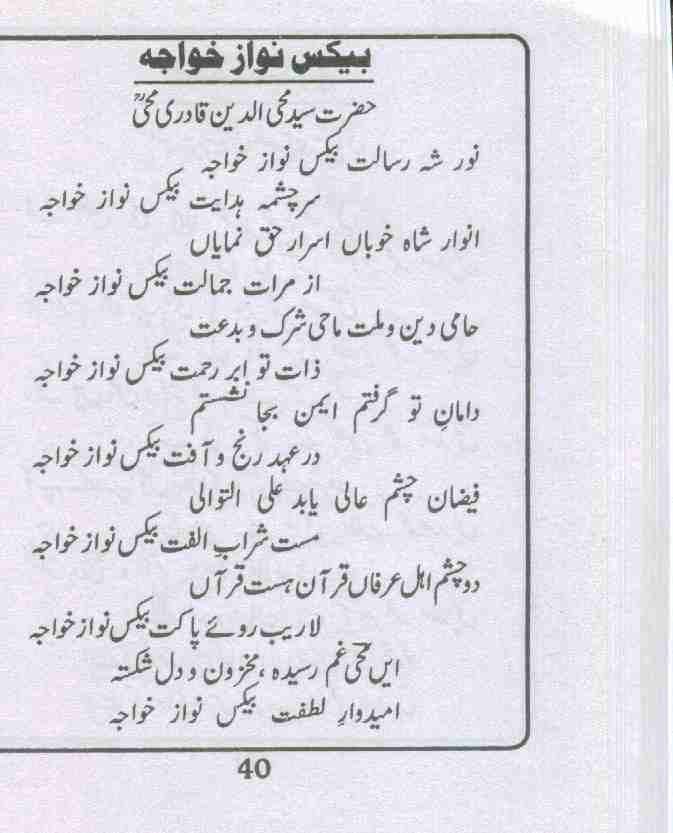 بیکس نواز خواجہ
حضرت سید محی الدین قادری محیؒ
نور شہ رسالت بیکس نواز خواجہ
سرچشمہ ہدایت بیکس نواز خواجہ
انوار شاہ خوباں اسرار حق نمایاں
از مرات جمالت بیکس نواز خواجہ
حامی دین و ملت ماحی شرک و بدعت
ذات تو ابر رحمت بیکس نواز خواجہ
دامانِ تو گرفتم ایمن بجا نشستم
در عہد رنج و آفت بیکس نواز خواجہ
فیضان چشم عالی یابد علی التوالی
مست شرابِ الفت بیکس نواز خواجہ
دو چشم اہل عرفاں قرآن ہست قرآں
لاریب روئے پاکت بیکس نواز خواجہ
ایں محیؔ غم رسیدہ ، مخزون و دل شکستہ
امیدوارِ لطفت بیکس نواز خواجہ
40